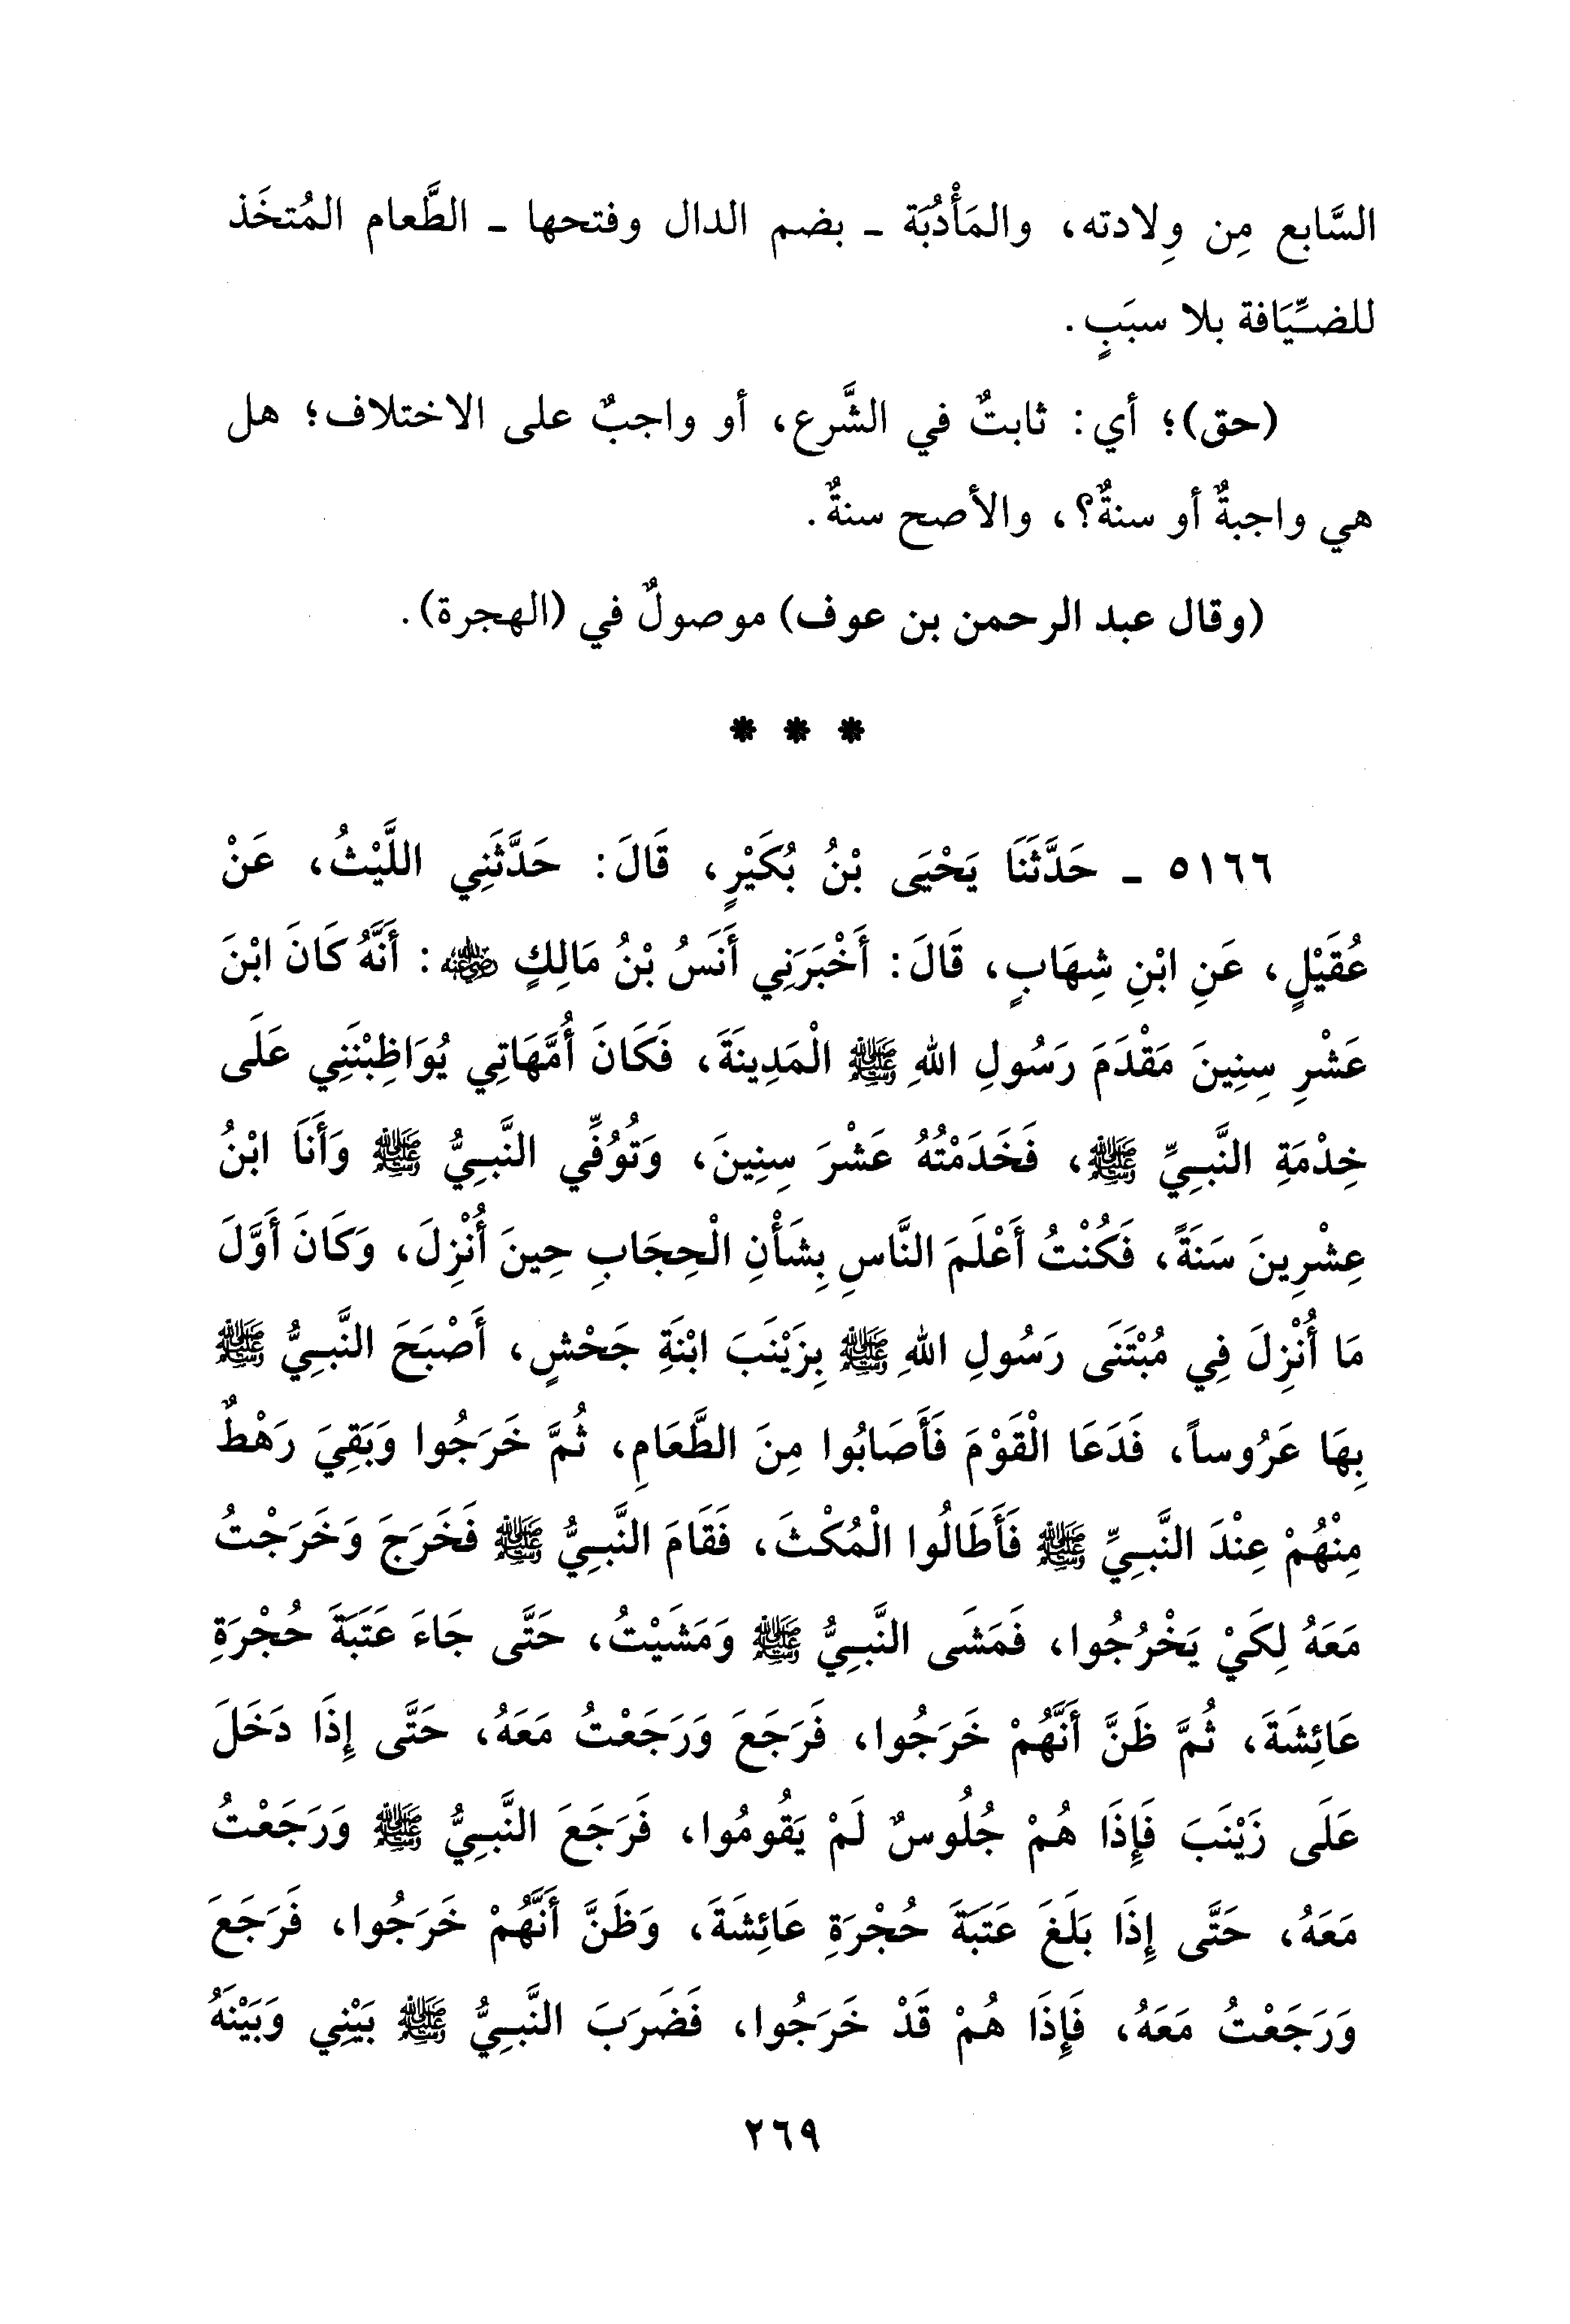 السَّابع مِن وِلادته، والمَأْدُبَة ـ بضم الدال وفتحها ـ الطَّعام المُتخَذ
للضِّيَافة بلا سبَبٍ.
(حق)؛ أي: ثابتٌ في الشَّرع، أو واجبٌ على الاختلاف؛ هل
هي واجبةٌ أو سنةٌ؟، والأصح سنةٌ.
(وقال عبد الرحمن بن عوف) موصولٌ في (الهجرة).
* * *
٥١٦٦ ـ حَدَّثَنَا يَحْيَى بْنُ بُكَيْرٍ، قَالَ: حَدَّثَنِي اللَّيْثُ، عَنْ
عُقَيْلٍ، عَنِ ابْنِ شِهَابٍ، قَالَ: أَخْبَرَنِي أَنَسُ بْنُ مَالِكٍ رضي الله عنه: أَنَّهُ كَانَ ابْنَ
عَشْرِ سِنِينَ مَقْدَمَ رَسُولِ اللهِ ﷺ الْمَدِينَةَ، فَكَانَ أُمَّهَاتِي يُوَاظِبْنَنِي عَلَى
خِدْمَةِ النَّبِيِّ ﷺ، فَخَدَمْتُهُ عَشْرَ سِنِينَ، وَتُوُفِّي النَّبِيُّ ﷺ وَأَنَا ابْنُ
عِشْرِينَ سَنَةً، فَكُنْتُ أَعْلَمَ النَّاسِ بِشَأْنِ الْحِجَابِ حِينَ أُنْزِلَ، وَكَانَ أَوَّلَ
مَا أُنْزِلَ فِي مُبْتَنَى رَسُولِ اللهِ ﷺ بِزَيْنَبَ ابْنَةِ جَحْشٍ، أَصْبَحَ النَّبِيُّ ﷺ
بِهَا عَرُوساً، فَدَعَا الْقَوْمَ فَأَصَابُوا مِنَ الطَّعَامِ، ثُمَّ خَرَجُوا وَبَقِيَ رَهْطٌ
مِنْهُمْ عِنْدَ النَّبِيِّ ﷺ فَأَطَالُوا الْمُكْثَ، فَقَامَ النَّبِيُّ ﷺ فَخَرَجَ وَخَرَجْتُ
مَعَهُ لِكَيْ يَخْرُجُوا، فَمَشَى النَّبِيُّ ﷺ وَمَشَيْتُ، حَتَّى جَاءَ عَتَبَةَ حُجْرَةِ
عَائِشَةَ، ثُمَّ ظَنَّ أَنَّهُمْ خَرَجُوا، فَرَجَعَ وَرَجَعْتُ مَعَهُ، حَتَّى إِذَا دَخَلَ
عَلَى زَيْنَبَ فَإِذَا هُمْ جُلُوسٌ لَمْ يَقُومُوا، فَرَجَعَ النَّبِيُّ ﷺ وَرَجَعْتُ
مَعَهُ، حَتَّى إِذَا بَلَغَ عَتَبَةَ حُجْرَةِ عَائِشَةَ، وَظَنَّ أَنَّهُمْ خَرَجُوا، فَرَجَعَ
وَرَجَعْتُ مَعَهُ، فَإِذَا هُمْ قَدْ خَرَجُوا، فَضَرَبَ النَّبِيُّ ﷺ بَيْنِي وَبَيْنَهُ
٢٦٩